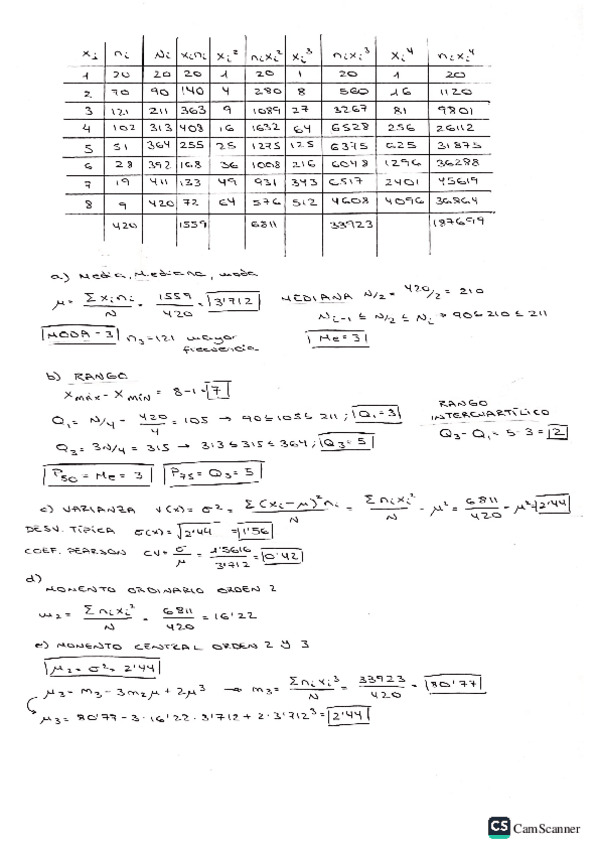 xi ni Ni xini xi² nixi² xi³ nixi³ xi⁴ nixi⁴
1 20 20 20 1 20 1 20 1 20
2 70 90 140 4 280 8 560 16 1120
3 121 211 363 9 1089 27 3267 81 9801
4 102 313 408 16 1632 64 6528 256 26112
5 51 364 255 25 1275 125 6375 625 31875
6 28 392 168 36 1008 216 6048 1296 36288
7 19 411 133 49 931 343 6517 2401 45619
8 9 420 72 64 576 512 4608 4096 36864
420 1559 6811 33923 187699
a) Media, Mediana, moda
μ = Σ xini / N = 1559 / 420 = 3'712 MEDIANA N/2 = 420/2 = 210
Ni-1 ≤ N/2 ≤ Ni → 90≤210≤211
MODA = 3 n3=121 mayor frecuencia Me=3
b) RANGO
xmáx - xmín = 8-1=7
Q1 = N/4 = 420/4 = 105 → 90≤105≤211; Q1=3
RANGO INTERCUARTÍLICO
Q3 - Q1 = 5-3 = 2
Q3 = 3N/4 = 315 → 313≤315≤364; Q3=5
P50 = Me = 3 P75 = Q3 = 5
c) VARIANZA V(x) = σ² = Σ(xi-μ)²ni / N = Σ nixi² / N - μ² = 6811 / 420 - μ² = 2'44
DESV. TÍPICA σ(x) = √2'44 = 1'56
COEF. PEARSON CV = σ / μ = 1'5616 / 3'712 = 0'42
d)
MOMENTO ORDINARIO ORDEN 2
m2 = Σ nixi² / N = 6811 / 420 = 16'22
e) MOMENTO CENTRAL ORDEN 2 Y 3
μ2 = σ² = 2'44
μ3 = m3 - 3m2μ + 2μ³ → m3 = Σ nixi³ / N = 33923 / 420 = 80'77
μ3 = 80'77 - 3·16'22·3'712 + 2·3'712³ = 2'44
CS CamScanner